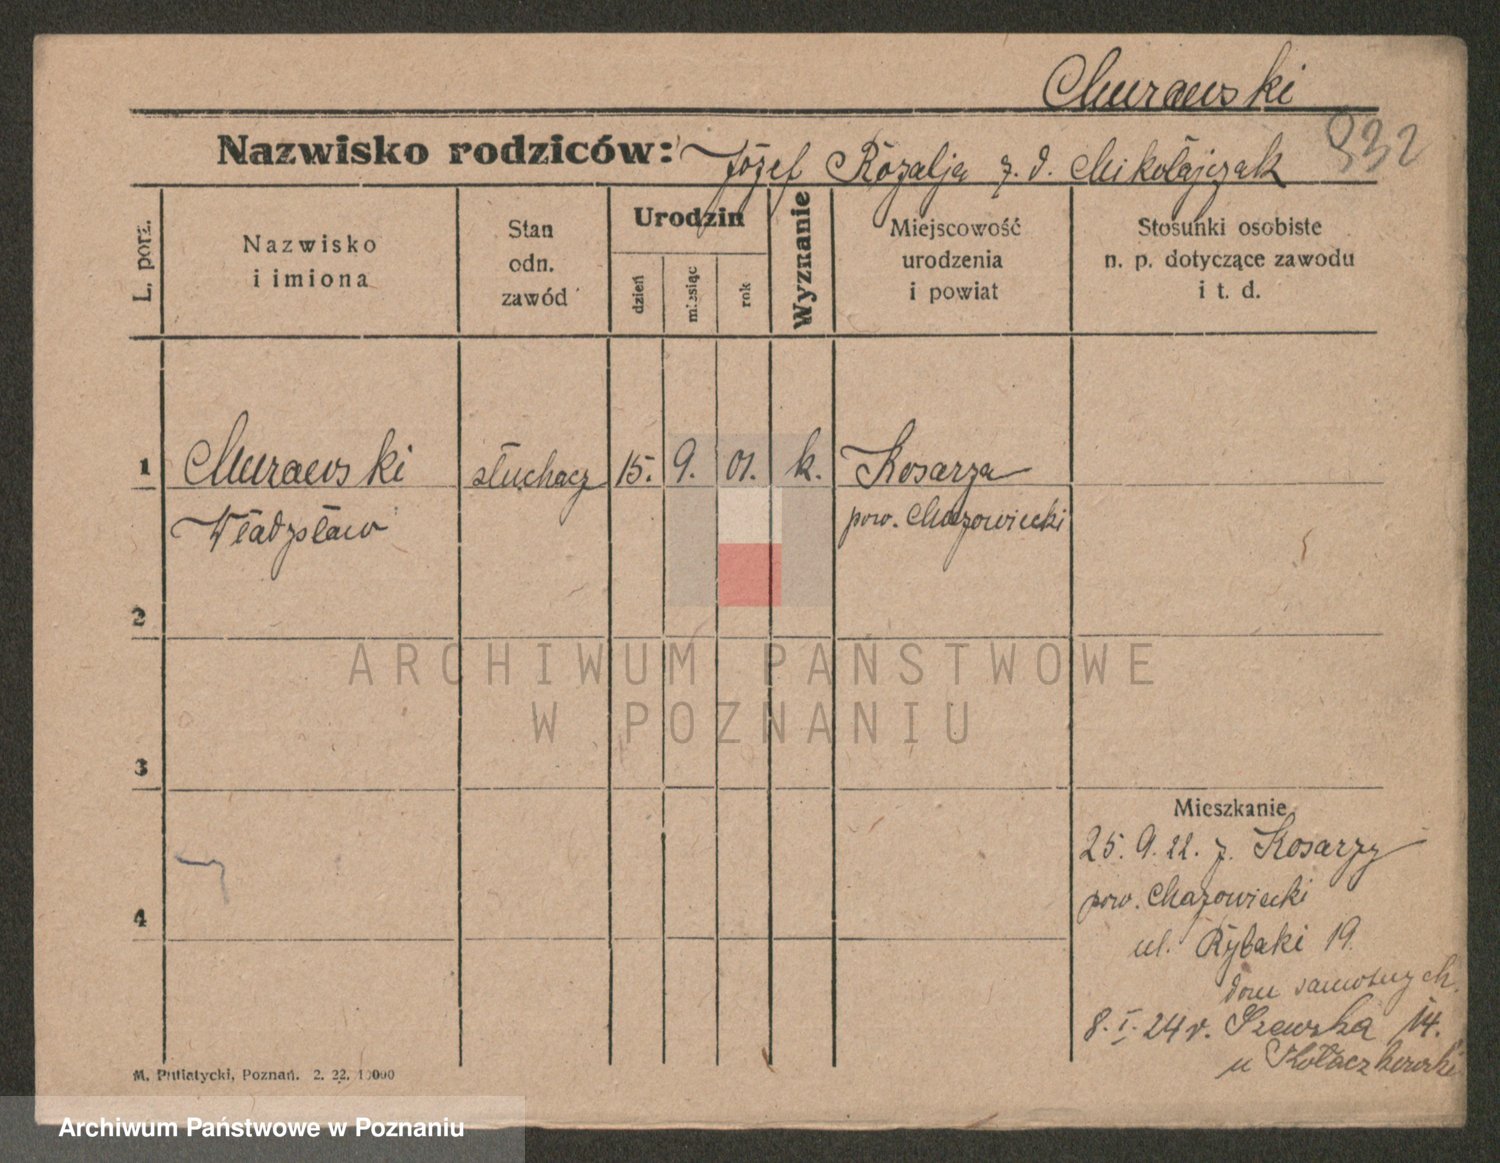 Murawski
Nazwisko rodziców: Józef Rozalja z. d. Mikołajczak
932
L. porz.
Nazwisko
i imiona
Stan
odn.
zawód
Urodzin
dzień
miesiąc
rok
Wyznanie
Miejscowość
urodzenia
i powiat
Stosunki osobiste
n. p. dotyczące zawodu
i t. d.
1
Murawski
słuchacz
15. 9. 01. k.
Kosarza
Władysław
pow. Mazowiecki
2
3
4
Mieszkanie
25. 9. 22. z. Kosarzy
pow. Mazowiecki
ul. Rybaki 19
dom samotnych.
8. I. 24 r. Szewska 14.
u Kołaczkowski
M. Putiatycki, Poznań. 2. 22. 10000
ARCHIWUM PAŃSTWOWE
W POZNANIU
Archiwum Państwowe w Poznaniu